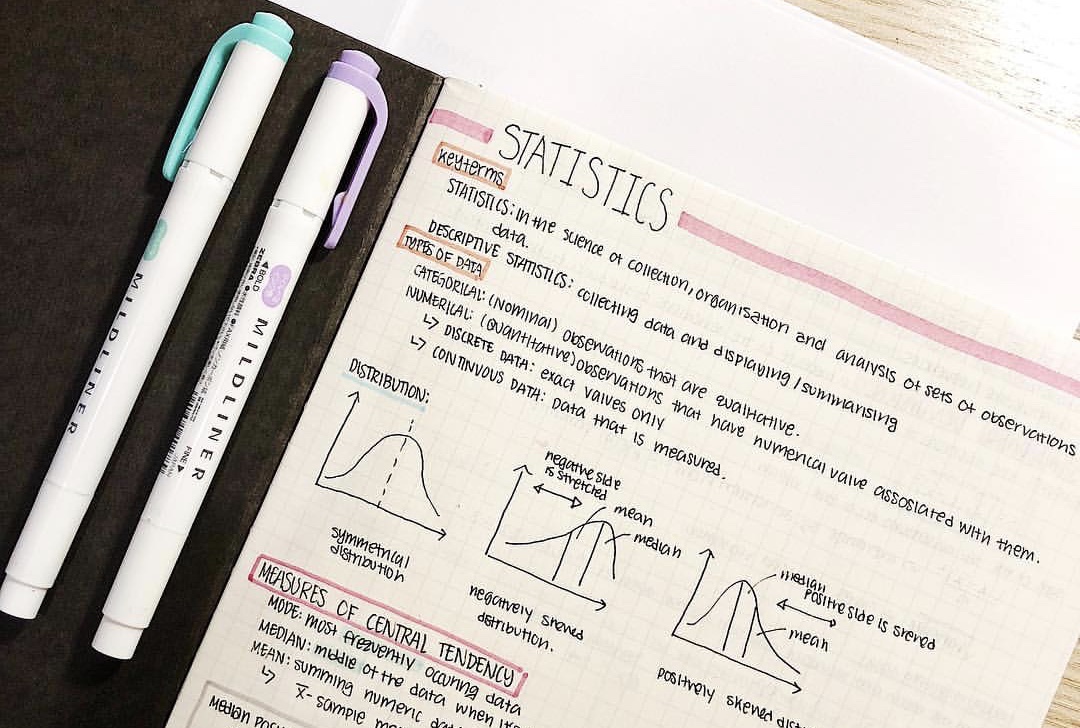 STATISTICS
keyterms
STATISTICS: in the science of collection, organisation and analysis of sets of observations
data.
DESCRIPTIVE STATISTICS: collecting data and displaying / summarising
TYPES OF DATA
CATEGORICAL: (Nominal) observations that are qualitative.
NUMERICAL: (Quantitative) observations that have numerical value assosiated with them.
↳ DISCRETE DATA: exact values only
↳ CONTINUOUS DATA: Data that is measured.
DISTRIBUTION:
symmetrical
distribution
negative side
is stretched
mean
median
negatively skewed
distribution.
median
Positive side is skewed
mean
positively skewed dist
MEASURES OF CENTRAL TENDENCY
MODE: most frequently occuring data
MEDIAN: middle of the data when it's
MEAN: summing numeric dat
↳ x̄- sample me
Median
MILDLINER
◀ BOLD
ZEBRA
MILDLINER
FINE ▶